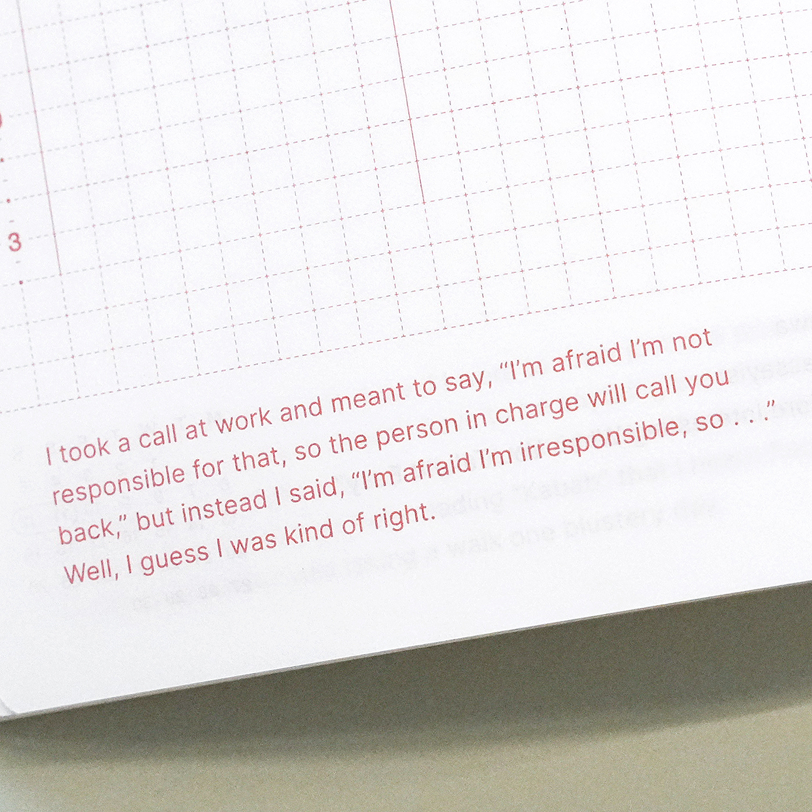 3
I took a call at work and meant to say, “I’m afraid I’m not
responsible for that, so the person in charge will call you
back,” but instead I said, “I’m afraid I’m irresponsible, so . . .”
Well, I guess I was kind of right.